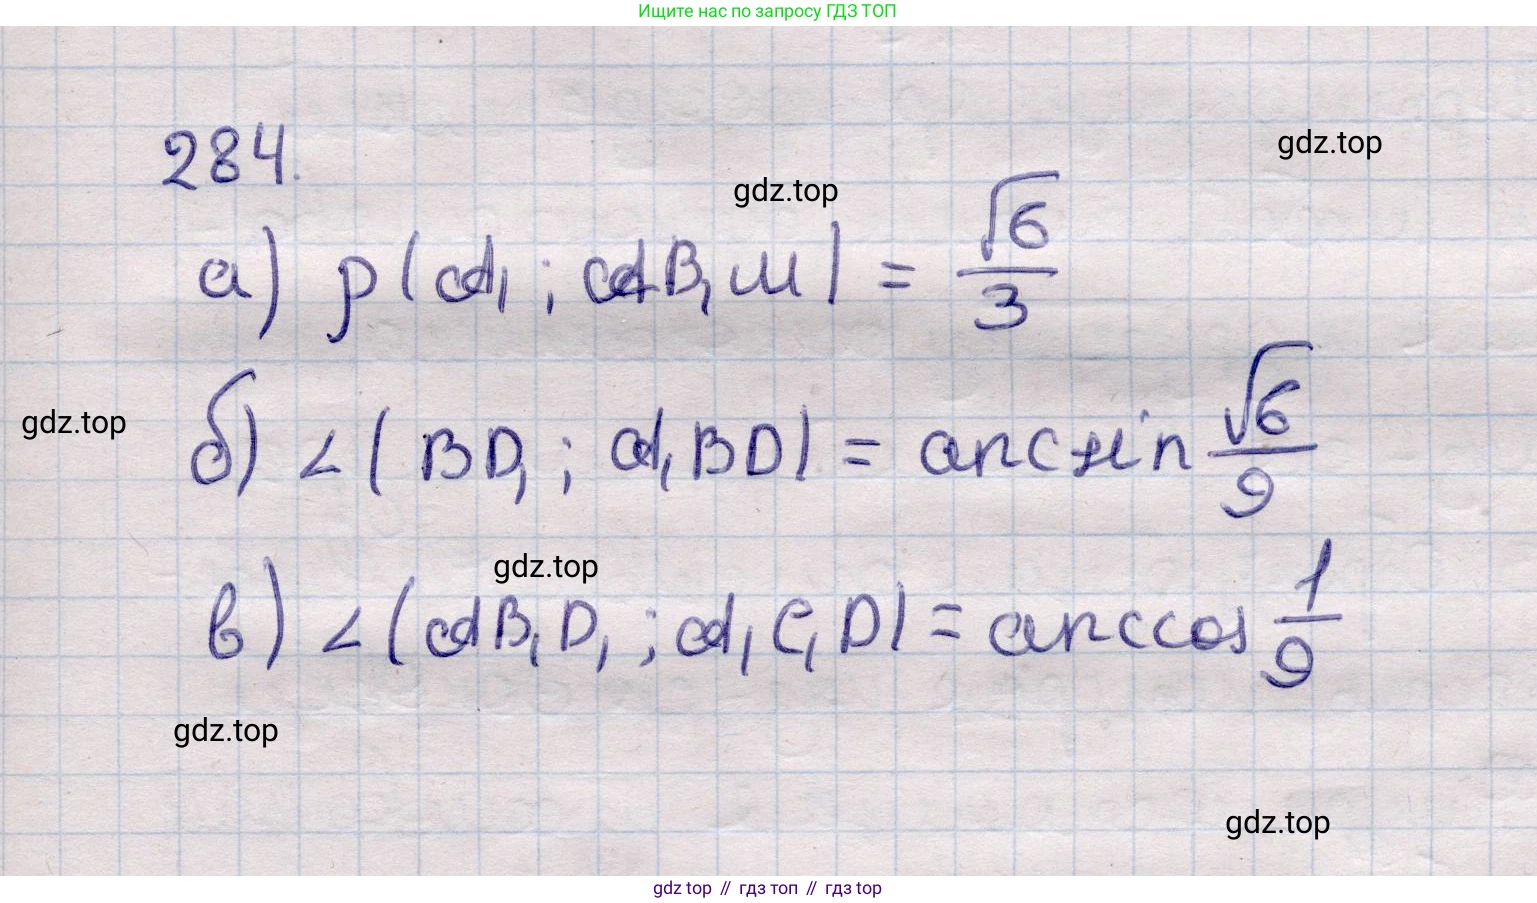 Ищите нас по запросу ГДЗ ТОП
284.
gdz.top
gdz.top
а) ρ(A₁; AB₁M) = √6/3
gdz.top
б) ∠(BD₁; A₁BD) = arcsin √6/9
gdz.top
в) ∠(AB₁D₁; A₁C₁D) = arccos 1/9
gdz.top
gdz.top
gdz top // гдз топ // гдз top